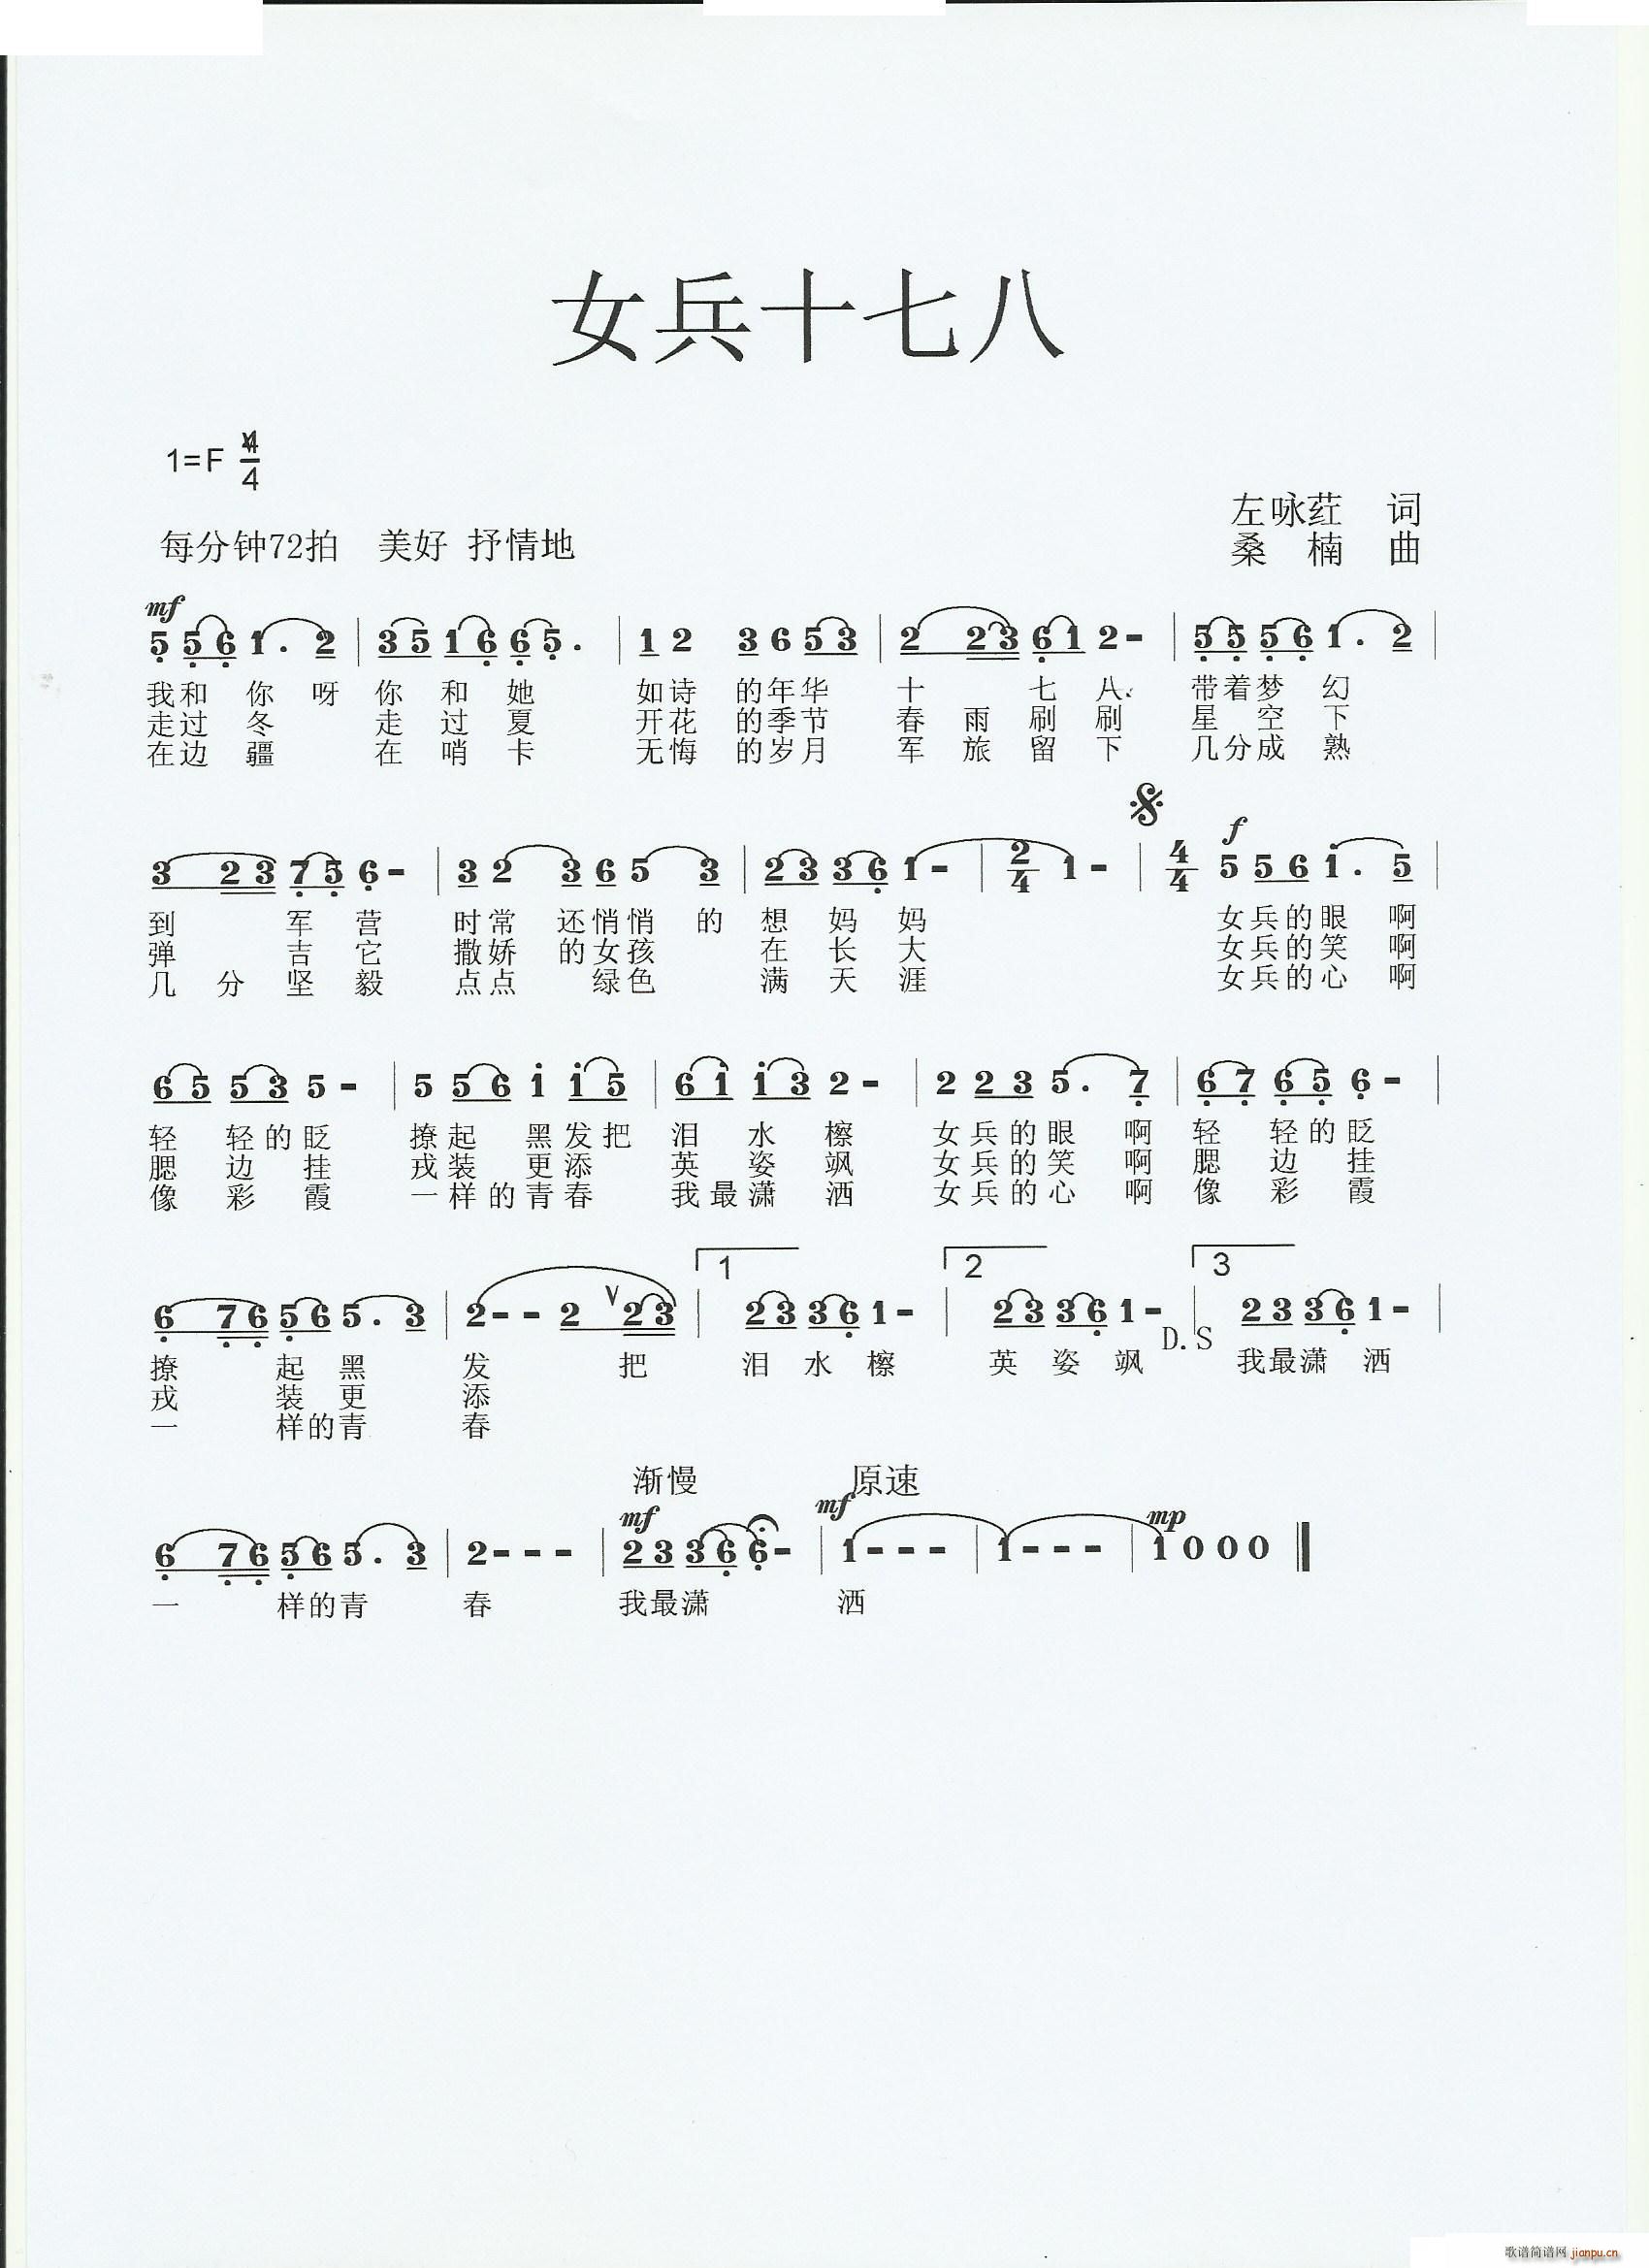 女兵十七八
1=F 4/4
左咏荭 词
每分钟72拍 美好 抒情地
桑楠 曲
mf
5 5 6 1. 2 | 3 5 1 6 6 5. | 1 2 3 6 5 3 | 2 2 3 6 1 2 - | 5 5 5 6 1. 2 |
我和 你 呀 你 和 她 如诗 的年华 十 七 八、 带着梦 幻
走过 冬 走 过 夏 开花 的季节 春 雨 刷 刷 星 空 下
在边 疆 在 哨 卡 无悔 的岁月 军 旅 留 下 几分成 熟
f
3 2 3 7 5 6 - | 3 2 3 6 5 3 | 2 3 3 6 1 - | 2/4 1 - | 4/4 5 5 6 i. 5 |
到 军 营 时常 还悄悄 的 想 妈 妈 女兵的眼 啊
弹 吉 它 撒娇 的女孩 在 长 大 女兵的笑 啊
几 分 坚 毅 点点 绿色 满 天 涯 女兵的心 啊
6 5 5 3 5 - | 5 5 6 i i 5 | 6 i i 3 2 - | 2 2 3 5. 7 | 6 7 6 5 6 - |
轻 轻的眨 撩起 黑发把 泪 水 檫 女兵的眼 啊 轻 轻的眨
腮 边 挂 戎装 更添 英 姿 飒 女兵的笑 啊 腮 边 挂
像 彩 霞 一样的青春 我最潇 洒 女兵的心 啊 像 彩 霞
1 2 3
6 7 6 5 6 5. 3 | 2 - - 2 V 2 3 | 2 3 3 6 1 - | 2 3 3 6 1 - | 2 3 3 6 1 - |
D.S
撩 起 黑 发 把 泪 水 檫 英 姿 飒 我最潇 洒
戎 装 更 添
一 样的青 春
渐慢 原速
mf mf mp
6 7 6 5 6 5. 3 | 2 - - - | 2 3 3 6 6 - | 1 - - - | 1 - - - | 1 0 0 0 ‖
一 样的青 春 我最潇 洒
歌谱简谱网 jianpu.cn